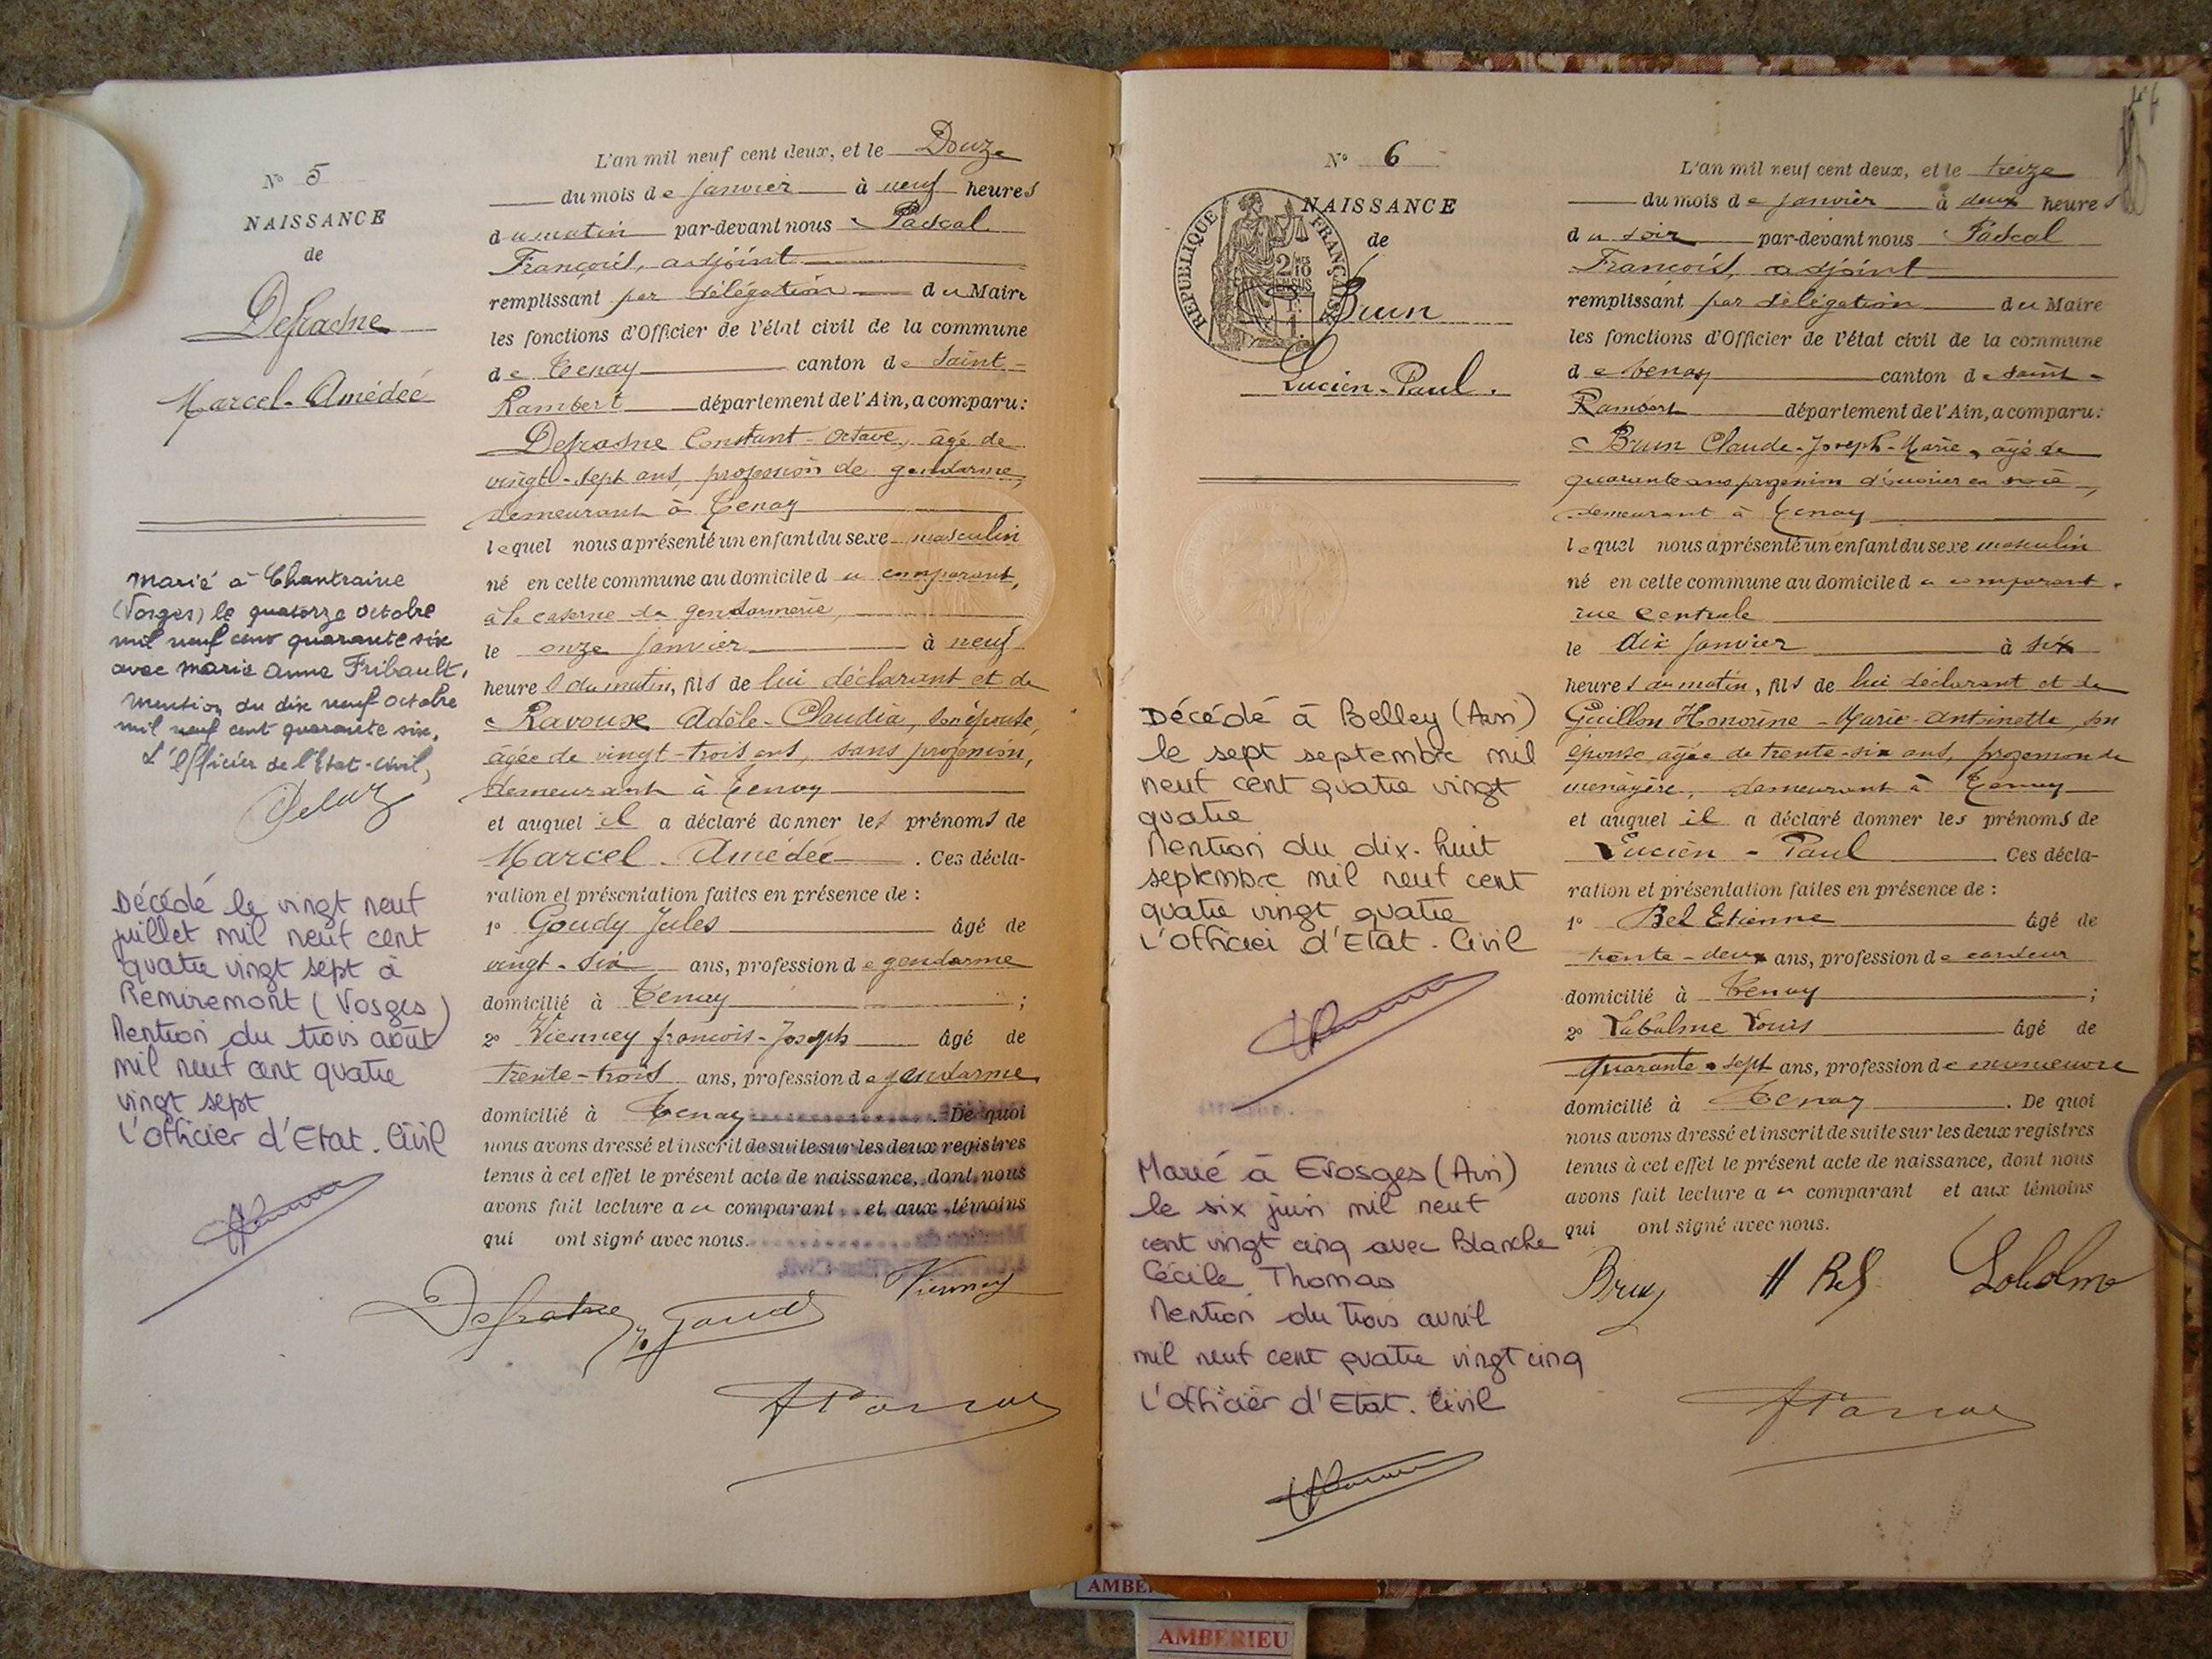 N° 5
NAISSANCE
de
Defrasne
Marcel-Amédée
Marié à Chantraine
(Vosges) le quatorze octobre
mil neuf cent quarante six
avec Marie Anne Fribault.
Mention du dix neuf octobre
mil neuf cent quarante six.
L'Officier de l'Etat-civil,
Décédé le vingt neuf
juillet mil neuf cent
quatre vingt sept à
Remiremont (Vosges)
Mention du trois août
mil neuf cent quatre
vingt sept
L'officier d'Etat.Civil
L'an mil neuf cent deux, et le Douze
du mois de janvier à neuf heures
du matin par-devant nous Pascal
François, adjoint
remplissant par délégation du Maire
les fonctions d'Officier de l'état civil de la commune
de Tenay canton de Saint-
Rambert département de l'Ain, a comparu:
Defrasne Constant-Octave, âgé de
vingt-sept ans, profession de gendarme,
demeurant à Tenay
lequel nous a présenté un enfant du sexe masculin
né en cette commune au domicile du comparant,
à la caserne de gendarmerie,
le onze janvier à neuf
heures du matin, fils de lui déclarant et de
Ravoux Adèle-Claudia, son épouse,
âgée de vingt-trois ans, sans profession,
demeurant à Tenay
et auquel il a déclaré donner les prénoms de
Marcel-Amédée. Ces décla-
ration et présentation faites en présence de :
1° Goudy Jules âgé de
vingt-six ans, profession de gendarme
domicilié à Tenay ;
2° Vienney françois-Joseph âgé de
trente-trois ans, profession de gendarme
domicilié à Tenay. De quoi
nous avons dressé et inscrit de suite sur les deux registres
tenus à cet effet le présent acte de naissance, dont nous
avons fait lecture au comparant et aux témoins
qui ont signé avec nous.
Defrasne
Vienney
N° 6
NAISSANCE
de
REPUBLIQUE FRANÇAISE
2/10 EN SUS
1 F.
Brun
Lucien-Paul.
Décédé à Belley (Ain)
le sept septembre mil
neuf cent quatre vingt
quatre
Mention du dix-huit
septembre mil neuf cent
quatre vingt quatre
L'officier d'Etat.Civil
Marié à Evosges (Ain)
le six juin mil neuf
cent vingt cinq avec Blanche
Cécile Thomas
Mention du trois avril
mil neuf cent quatre vingt cinq
L'officier d'Etat.Civil
L'an mil neuf cent deux, et le treize
du mois de janvier à deux heures
du soir par-devant nous Pascal
François, adjoint
remplissant par délégation du Maire
les fonctions d'Officier de l'état civil de la commune
de Tenay canton de Saint-
Rambert département de l'Ain, a comparu:
Brun Claude-Joseph-Marie, âgé de
quarante ans profession d'ouvrier en soie,
demeurant à Tenay
lequel nous a présenté un enfant du sexe masculin
né en cette commune au domicile du comparant,
rue Centrale
le dix janvier à six
heures du matin, fils de lui déclarant et de
Guillon Honorine-Marie-Antoinette, son
épouse, âgée de trente-six ans, profession de
ménagère, demeurant à Tenay
et auquel il a déclaré donner les prénoms de
Lucien-Paul. Ces décla-
ration et présentation faites en présence de :
1° Bel Etienne âgé de
trente-deux ans, profession de cardeur
domicilié à Tenay ;
2° Labalme Louis âgé de
quarante-sept ans, profession de manoeuvre
domicilié à Tenay. De quoi
nous avons dressé et inscrit de suite sur les deux registres
tenus à cet effet le présent acte de naissance, dont nous
avons fait lecture au comparant et aux témoins
qui ont signé avec nous.
AMBERIEU